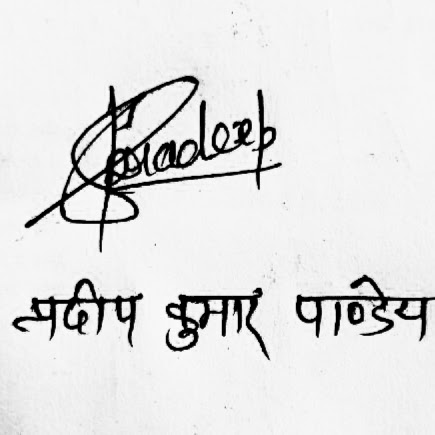 Pradeep
प्रदीप कुमार पाण्डेय